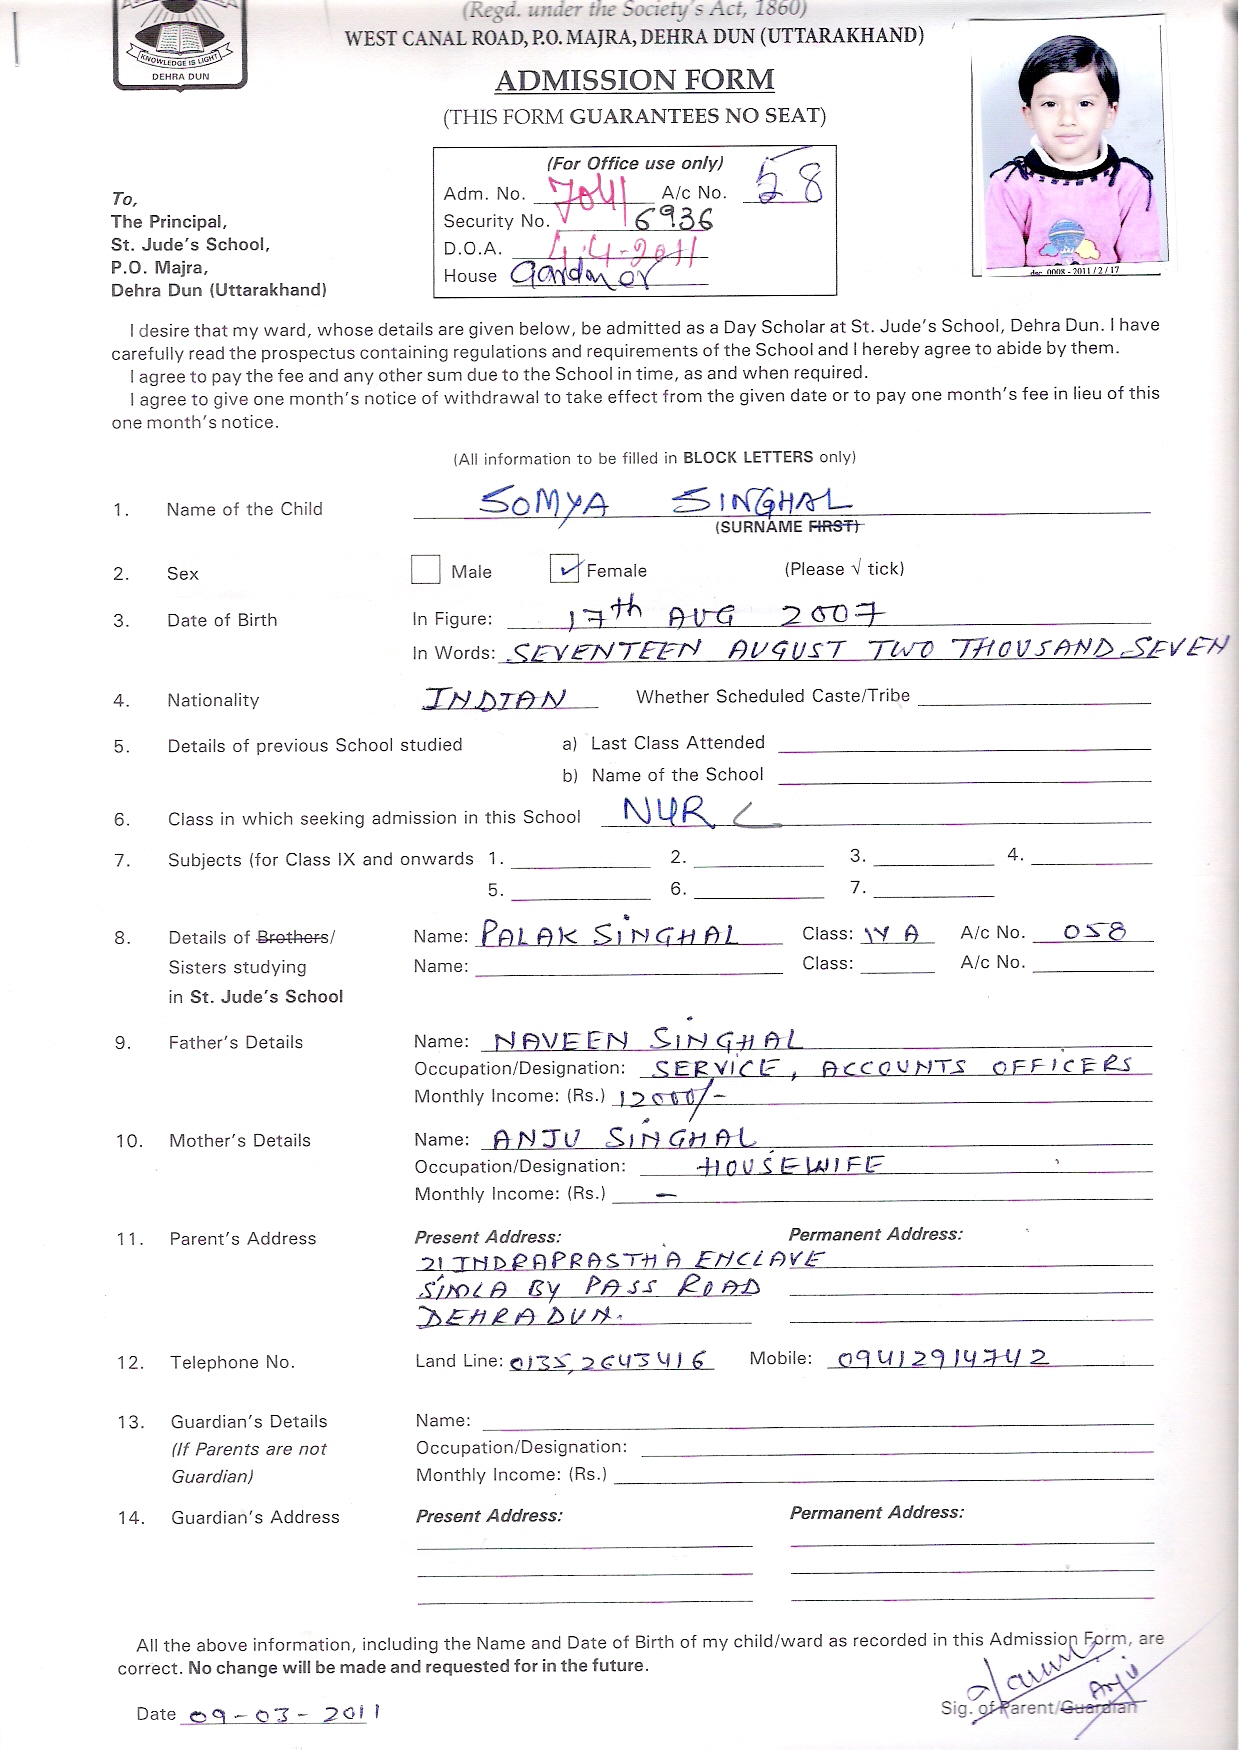 (Regd. under the Society's Act, 1860)
WEST CANAL ROAD, P.O. MAJRA, DEHRA DUN (UTTARAKHAND)
KNOWLEDGE IS LIGHT
DEHRA DUN
ADMISSION FORM
(THIS FORM GUARANTEES NO SEAT)
(For Office use only)
Adm. No. 7041 A/c No. 58
Security No. 6936
D.O.A. 4.4-2011
House
dsc_0008 - 2011/2/17
To,
The Principal,
St. Jude's School,
P.O. Majra,
Dehra Dun (Uttarakhand)
I desire that my ward, whose details are given below, be admitted as a Day Scholar at St. Jude's School, Dehra Dun. I have
carefully read the prospectus containing regulations and requirements of the School and I hereby agree to abide by them.
I agree to pay the fee and any other sum due to the School in time, as and when required.
I agree to give one month's notice of withdrawal to take effect from the given date or to pay one month's fee in lieu of this
one month's notice.
(All information to be filled in BLOCK LETTERS only)
1. Name of the Child SOMYA SINGHAL
(SURNAME FIRST)
2. Sex Male Female (Please √ tick)
3. Date of Birth In Figure: 17th AUG 2007
In Words: SEVENTEEN AUGUST TWO THOUSAND SEVEN
4. Nationality INDIAN Whether Scheduled Caste/Tribe
5. Details of previous School studied a) Last Class Attended
b) Name of the School
6. Class in which seeking admission in this School NUR C
7. Subjects (for Class IX and onwards 1. 2. 3. 4.
5. 6. 7.
8. Details of Brothers/ Name: PALAK SINGHAL Class: IV A A/c No. 058
Sisters studying Name: Class: A/c No.
in St. Jude's School
9. Father's Details Name: NAVEEN SINGHAL
Occupation/Designation: SERVICE, ACCOUNTS OFFICERS
Monthly Income: (Rs.) 12000/-
10. Mother's Details Name: ANJU SINGHAL
Occupation/Designation: HOUSEWIFE
Monthly Income: (Rs.) –
11. Parent's Address Present Address: Permanent Address:
21 INDRAPRASTHA ENCLAVE
SIMLA BY PASS ROAD
DEHRADUN.
12. Telephone No. Land Line: 0135, 2643416 Mobile: 09412914742
13. Guardian's Details Name:
(If Parents are not Occupation/Designation:
Guardian) Monthly Income: (Rs.)
14. Guardian's Address Present Address: Permanent Address:
All the above information, including the Name and Date of Birth of my child/ward as recorded in this Admission Form, are
correct. No change will be made and requested for in the future.
Anju
Date 09-03-2011 Sig. of Parent/Guardian